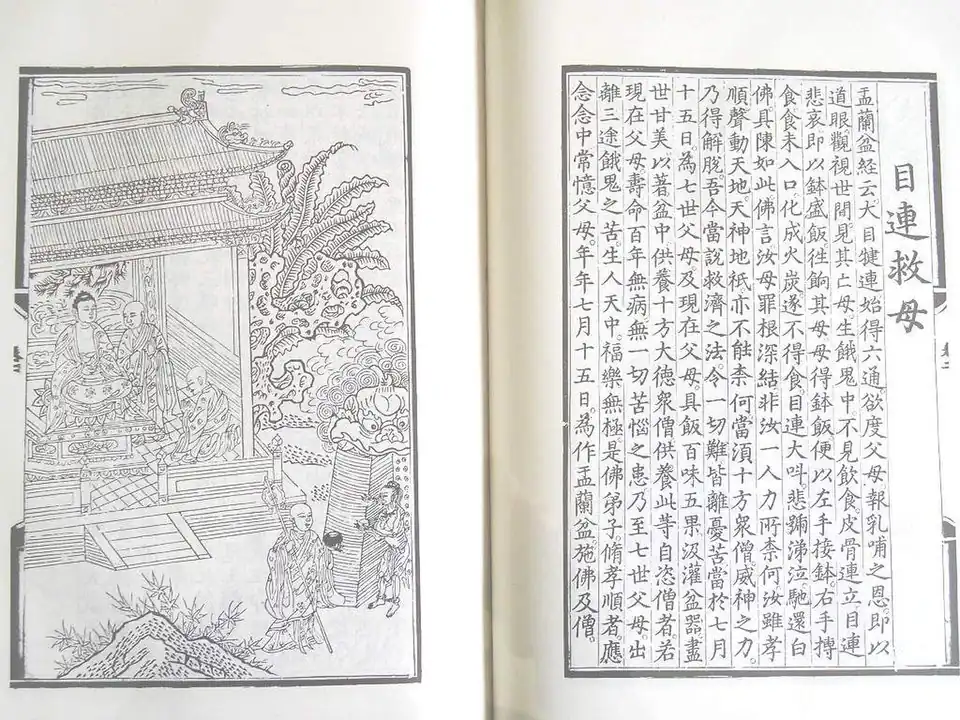 目連救母
盂蘭盆経云大目犍連始得六通欲度父母報乳哺之恩即以
道眼觀視世間見其亡母生餓鬼中不見飲食皮骨連立目連
悲哀即以鉢盛飯徃餉其母母得鉢飯便以左手接鉢右手摶
食食未入口化成火炭遂不得食目連大呌悲號涕泣馳還白
佛具陳如此佛言汝母罪根深結非汝一人力所柰何汝雖孝
順聲動天地天神地祇亦不能柰何當須十方衆僧威神之力
乃得解脫吾今當說救濟之法令一切難皆離憂苦當於七月
十五日為七世父母及現在父母具飯百味五果汲灌盆器盡
世甘美以著盆中供養十方大德衆僧供養此等自恣僧者若
現在父母壽命百年無病無一切苦惱之患乃至七世父母出
離三途餓鬼之苦生人天中福樂無極是佛弟子脩孝順者應
念念中常憶父母年年七月十五日為作盂蘭盆施佛及僧